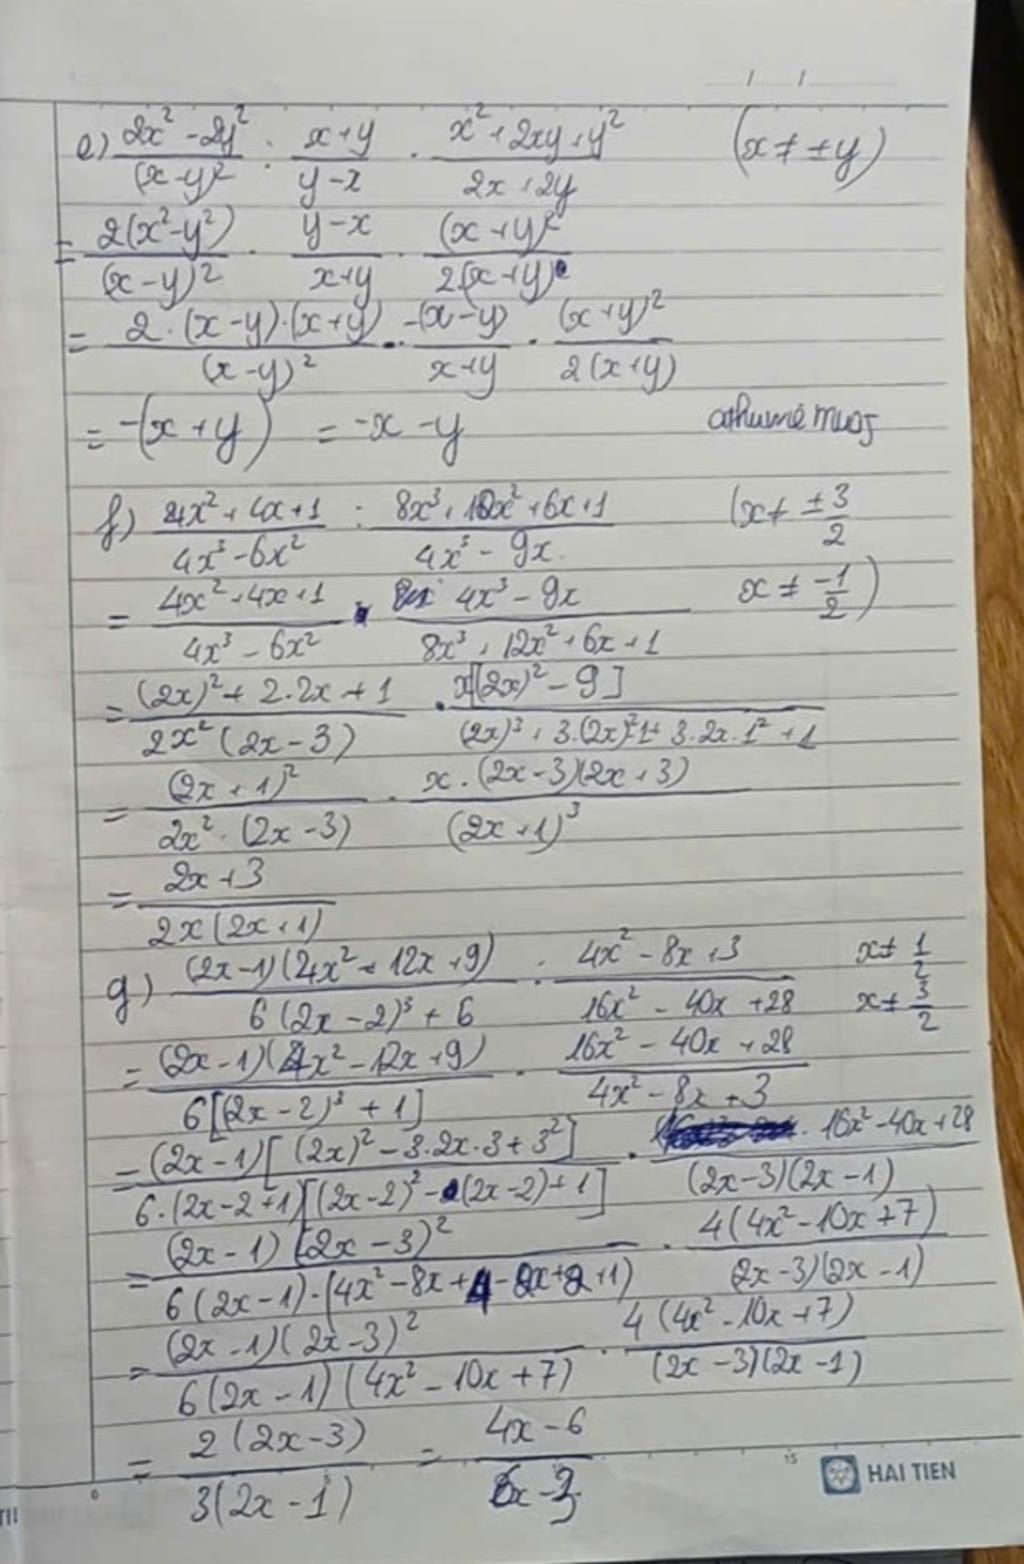 e) (2x² - 2y²)/(x-y)² : (x+y)/(y-x) · (x² + 2xy + y²)/(2x + 2y) (x ≠ ±y)
= 2(x²-y²)/(x-y)² · (y-x)/(x+y) · (x+y)²/2(x+y)
= 2·(x-y)·(x+y)/(x-y)² · -(x-y)/(x+y) · (x+y)²/2(x+y)
= -(x+y) = -x -y
f) (4x² + 4x + 1)/(4x³ - 6x²) : (8x³ + 12x² + 6x + 1)/(4x³ - 9x) (x ≠ ±3/2
= (4x² + 4x + 1)/(4x³ - 6x²) · (4x³ - 9x)/(8x³ + 12x² + 6x + 1) x ≠ -1/2)
= ((2x)² + 2.2x + 1)/2x²(2x - 3) · x[(2x)² - 9]/((2x)³ + 3.(2x)².1 + 3.2x.1² + 1)
= (2x + 1)²/2x²·(2x - 3) · x·(2x-3)(2x+3)/(2x+1)³
= (2x+3)/2x(2x+1)
g) (2x-1)(4x² - 12x + 9)/(6(2x-2)³ + 6) : (4x² - 8x + 3)/(16x² - 40x + 28) x ≠ 1/2 x ≠ 3/2
= (2x-1)(4x² - 12x + 9)/6[(2x-2)³ + 1] · (16x² - 40x + 28)/(4x² - 8x + 3)
= (2x-1)[(2x)² - 3.2x.3 + 3²]/6.(2x-2+1)[(2x-2)² - (2x-2) + 1] · (16x² - 40x + 28)/(2x-3)(2x-1)
= (2x-1)(2x-3)²/6(2x-1)·(4x² - 8x + 4 - 2x + 2 + 1) · 4(4x² - 10x + 7)/(2x-3)(2x-1)
= (2x-1)(2x-3)²/6(2x-1)(4x² - 10x + 7) · 4(4x² - 10x + 7)/(2x-3)(2x-1)
= 2(2x-3)/3(2x-1) = (4x-6)/(6x-3)
15
HAI TIEN